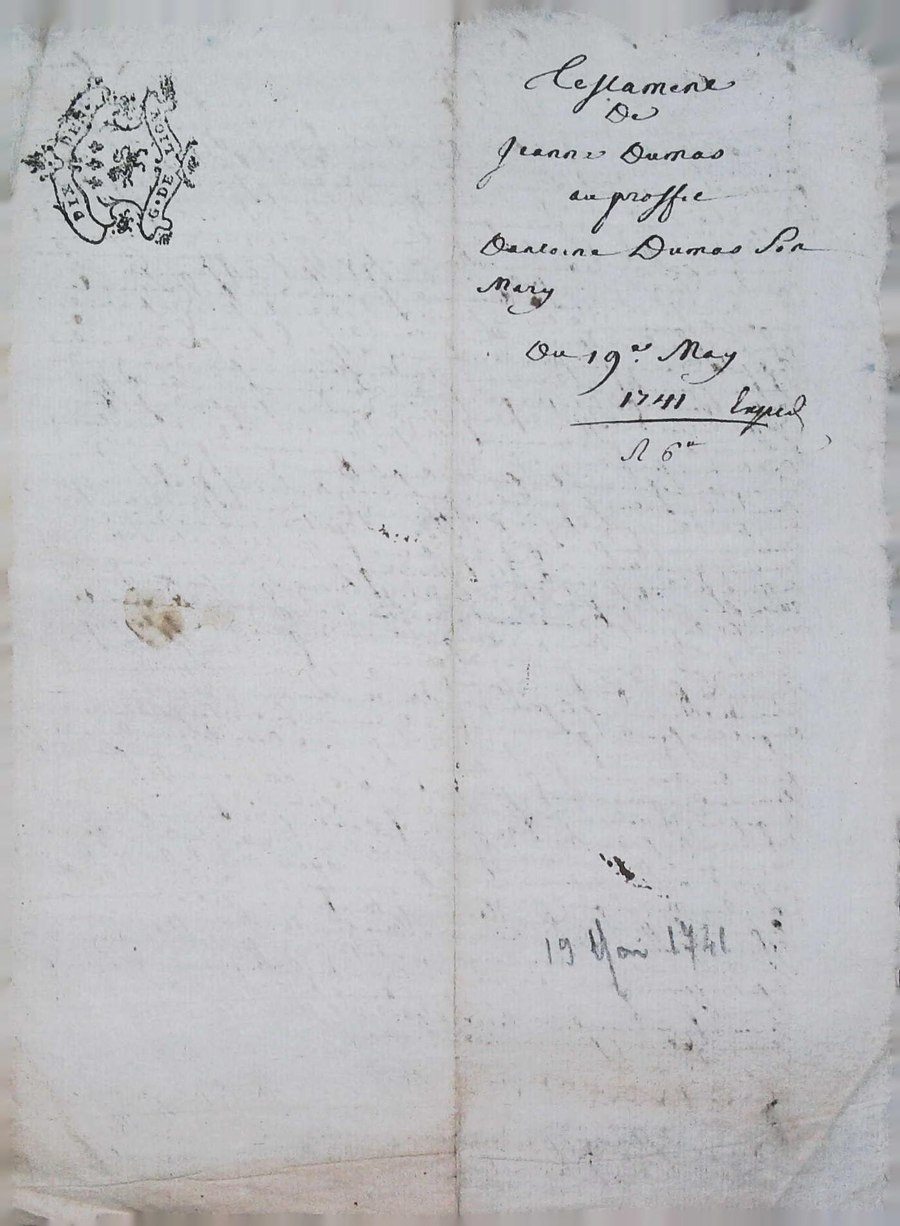 DIX DE.
G. DE LION
Testament
De
Jeanne Dumas
au proffit
Dantoine Dumas Son
Mary
Du 19e. May
1741 Exped
R 6
19 Mai 1741